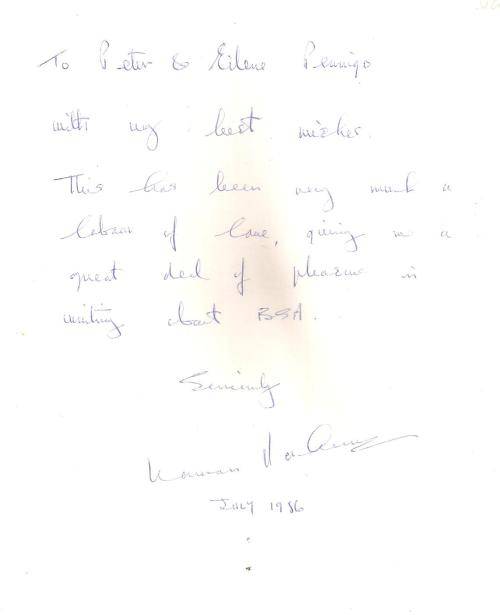 To Peter & Eilene Pennigo
with my best wishes.
This has been very much a
labour of love, giving me a
great deal of pleasure in
writing about BSA.
Sincerely
Norman
July 1986